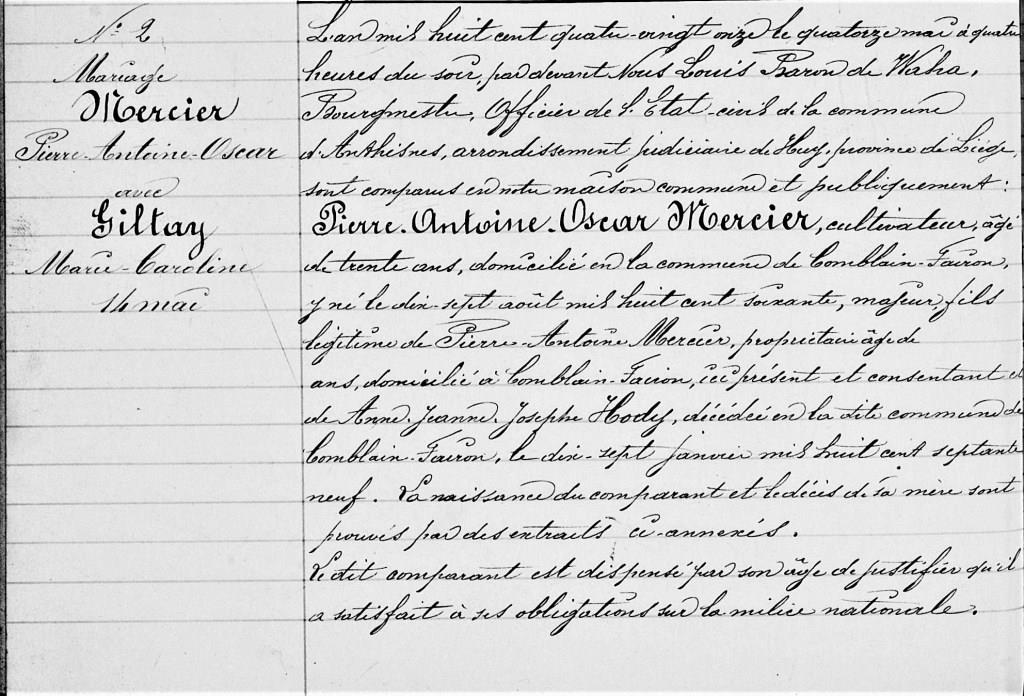 N° 2
Mariage
Mercier
Pierre-Antoine-Oscar
avec
Giltay
Marie-Caroline
14 mai
L'an mil huit cent quatre-vingt onze le quatorze mai à quatre
heures du soir, par devant Nous Louis Baron de Waha,
Bourgmestre, Officier de l'Etat-civil de la commune
d'Anthisnes, arrondissement judiciaire de Huy, province de Liège,
sont comparus en notre maison commune et publiquement :
Pierre-Antoine-Oscar Mercier, cultivateur, âgé
de trente ans, domicilié en la commune de Comblain-Fairon,
y né le dix-sept août mil huit cent soixante, majeur, fils
légitime de Pierre-Antoine Mercier, propriétaire âgé de
ans, domicilié à Comblain-Fairon, ici présent et consentant et
de Anne-Jeanne-Josephe Hody, décédée en la dite commune de
Comblain-Fairon, le dix-sept janvier mil huit cent septante
neuf. La naissance du comparant et le décès de sa mère sont
prouvés par des extraits ci-annexés.
Le dit comparant est dispensé par son âge de justifier qu'il
a satisfait à ses obligations sur la milice nationale.